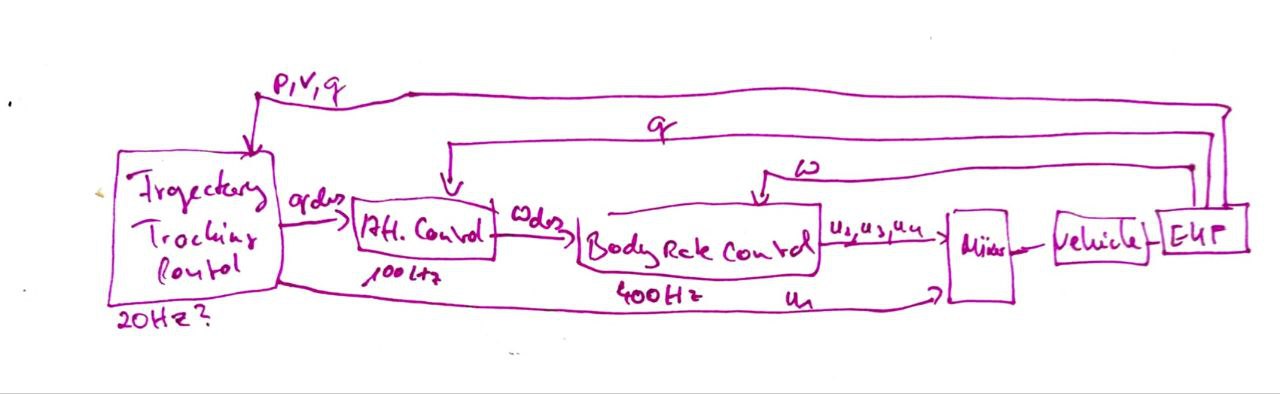 p,v,q
q
ω
Trajectory
Tracking
Control
20Hz?
qdes
Att. Control
100Hz
ωdes
Body Rate Control
400Hz
u2,u3,u4
u1
Mixer
Vehicle
EKF